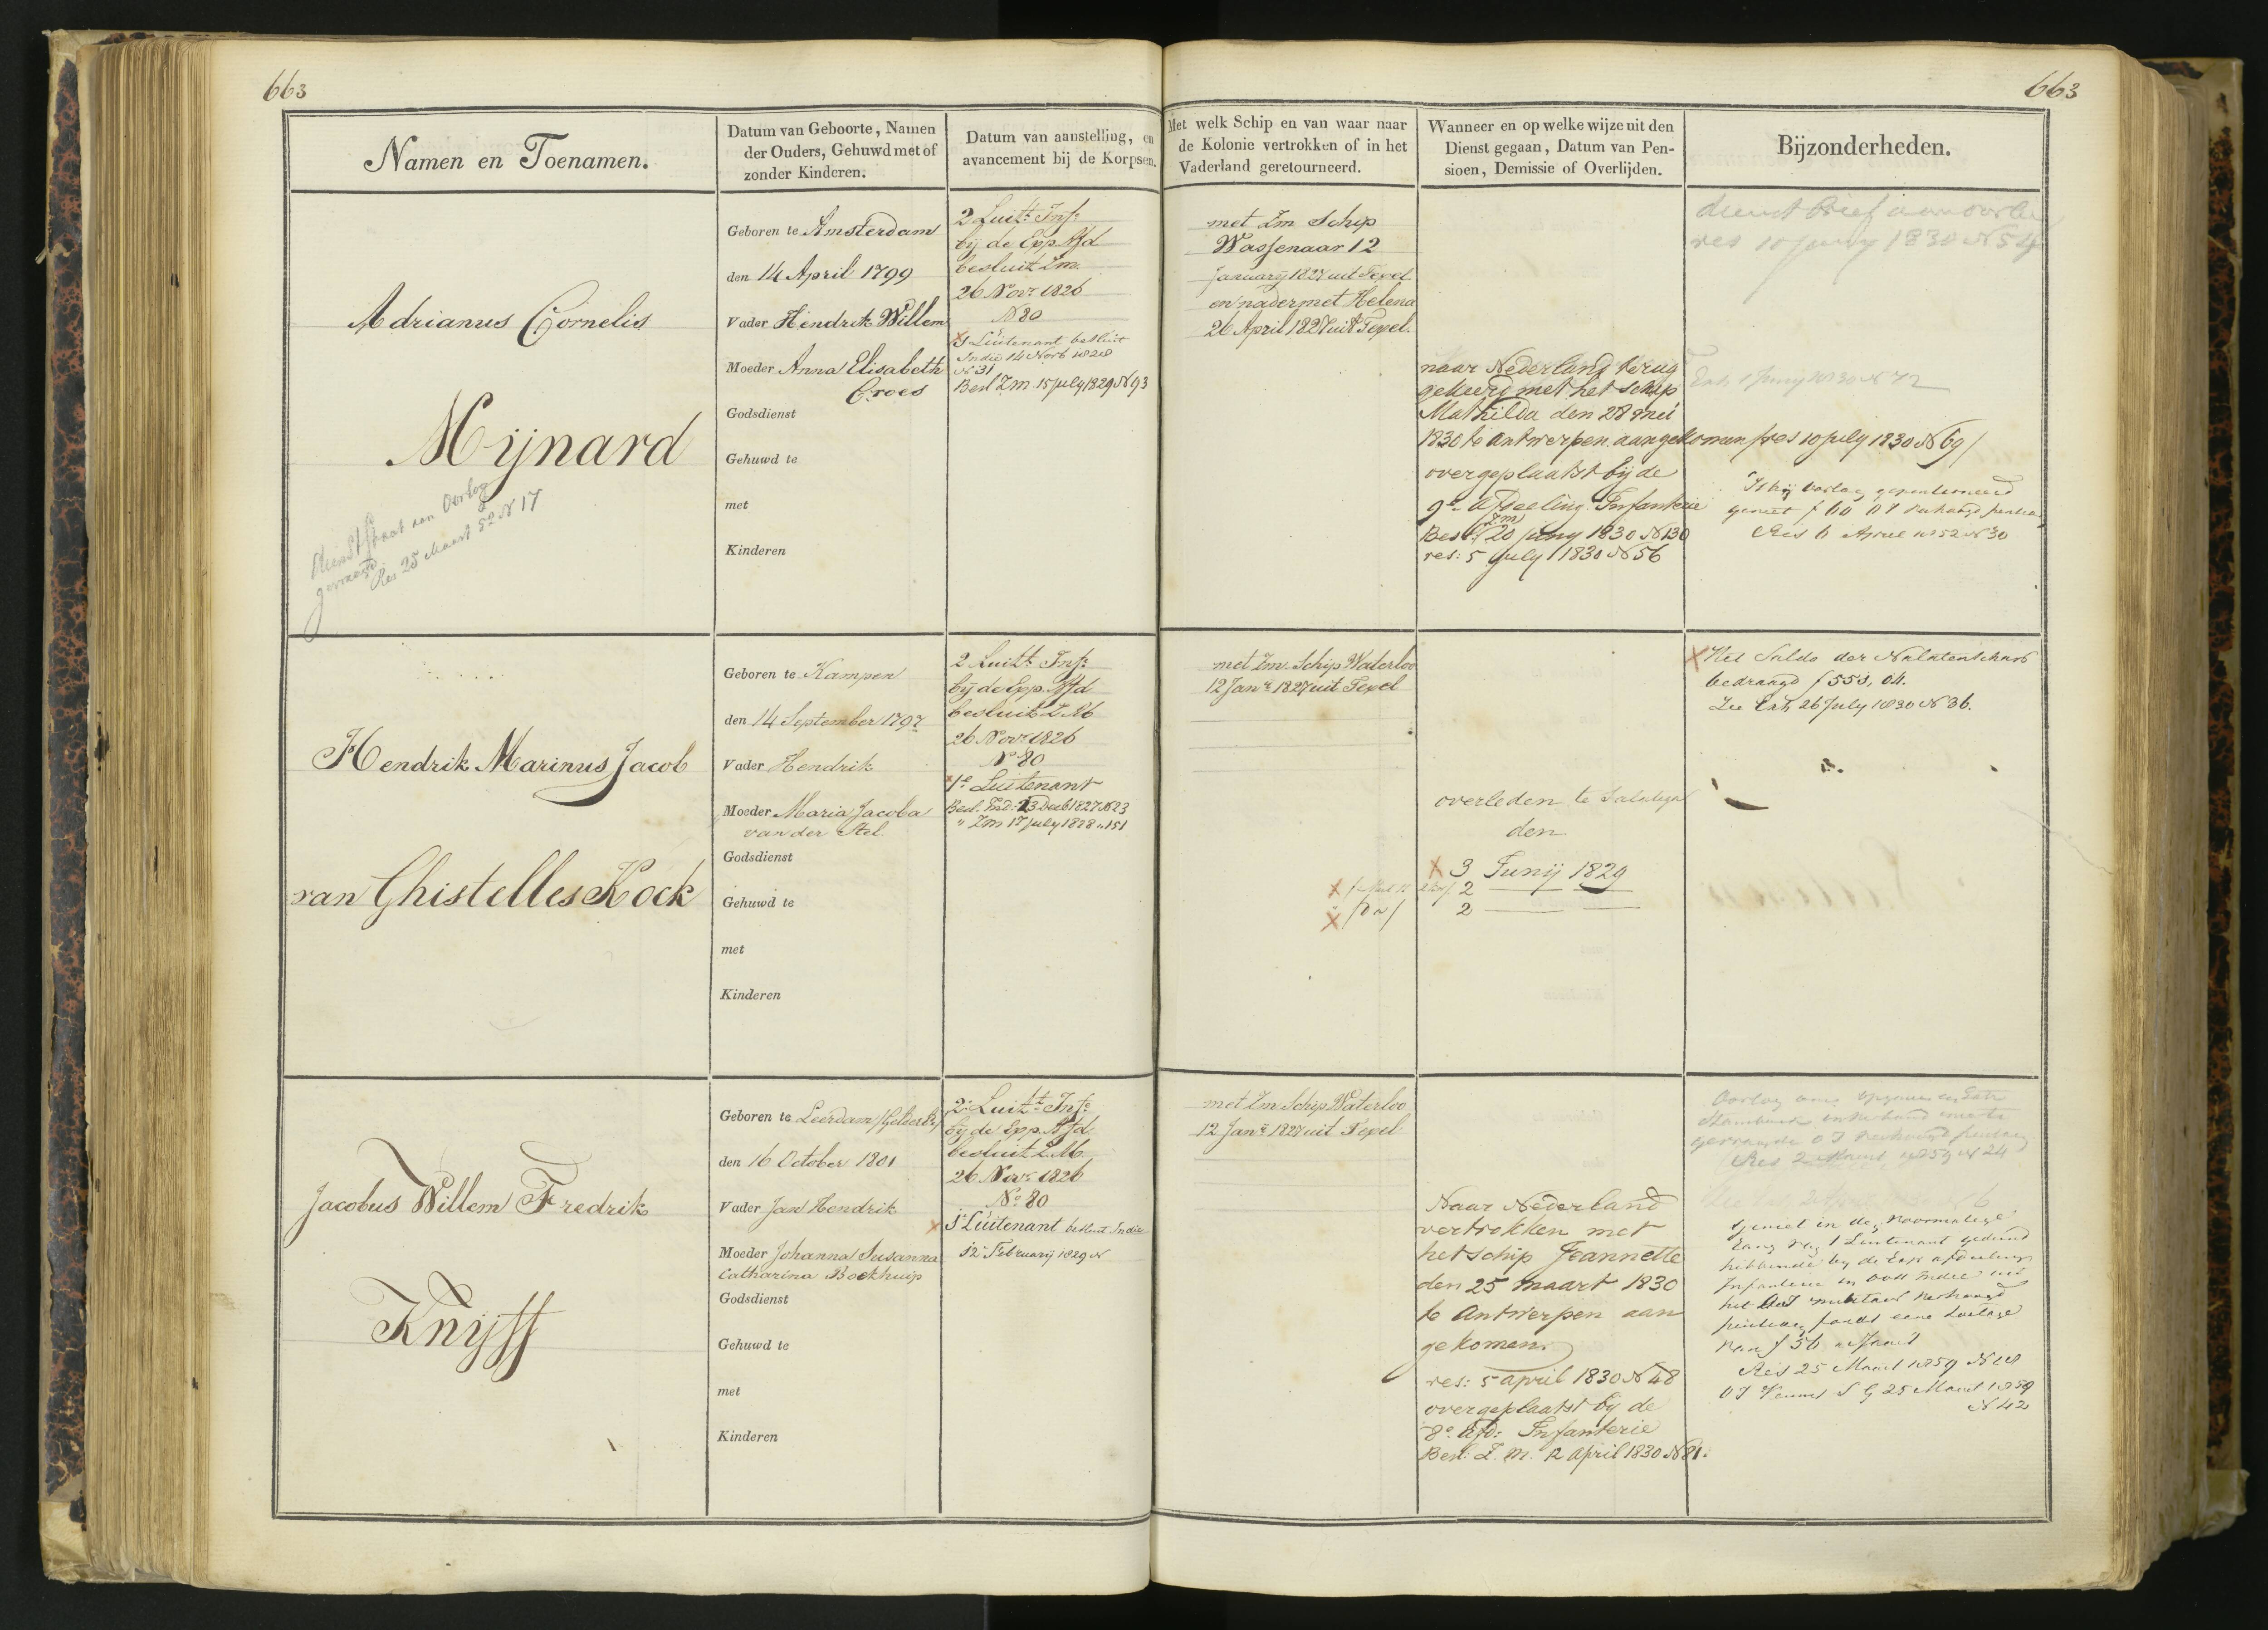 663
663
Namen en Toenamen.
Datum van Geboorte, Namen
der Ouders, Gehuwd met of
zonder Kinderen.
Datum van aanstelling, en
avancement bij de Korpsen.
Met welk Schip en van waar naar
de Kolonie vertrokken of in het
Vaderland geretourneerd.
Wanneer en op welke wijze uit den
Dienst gegaan, Datum van Pen-
sioen, Demissie of Overlijden.
Bijzonderheden.
Adrianus Cornelis
Mijnard
Dienststaat aan Oorlog
gevraagd
Res 25 Maart 52 N 17
Geboren te Amsterdam
den 14 April 1799
Vader Hendrik Willem
Moeder Anna Elisabeth
Croes
Godsdienst
Gehuwd te
met
Kinderen
2 Luitt. Inf:
bij de Exp. Afd
besluit Zm.
26 Novr 1826
N 80
1 Luitenant besluit
Indie 14 Novb 1828
N 31
Besl Z.m. 15 july 1829 N 93
met Zm Schip
Wassenaar 12
January 1827 uit Texel
en nader met Helena
26 April 1827 uit Texel.
naar Nederland terug
gekeerd met het schip
Mathilda den 28 mei
1830 te antwerpen aangekomen /res 10 july 1830 N 69/
overgeplaatst bij de
9e Afdeeling Infanterie
Besl (Zm) 20 juny 1830 N 130
res: 5 july 1830 N 56
dienst brief aan oorlo
res 10 juny 1830 N 54
Exh 1 Juny 1830 N 72
geniet f
Res 6 April 1852 N 30
Hendrik Marinus Jacob
van Ghistelles Kock
Geboren te Kampen
den 14 September 1797
Vader Hendrik
Moeder Maria Jacoba
van der Stel.
Godsdienst
Gehuwd te
met
Kinderen
2 Luitt. Inf:
bij de Exp. Afd
besluit Z. M
26 Novr 1826
No 80
1e Luitenant
Besl. Ind: 23 Decb 1827 N 23
" Zm 17 july 1828 " 151
met Zm. Schip Waterloo
12 Janr. 1827 uit Texel
overleden te Salatiga
den
3 Junij 1829
2
2
Het Saldo der Nalatenschap
bedraagd f 553,04.
Zie Exh 26 July 1830 N 36.
Jacobus Willem Fredrik
Knijff
Geboren te Leerdam /Gelderl:/
den 16 October 1801
Vader Jan Hendrik
Moeder Johanna Susanna
Catharina Bockhuis
Godsdienst
Gehuwd te
met
Kinderen
2e Luitt. Inf:
bij de Exp. Afd.
besluit Z. M.
26 Novr 1826
No 80
1e Luitenant besluit Indie
12 February 1829 N
met Zm Schip Waterloo
12 Janr. 1827 uit Texel
Naar Nederland
vertrokken met
het schip Jeannette
den 25 maart 1830
te Antwerpen aan
gekomen.
res: 5 april 1830 N 48
overgeplaatst bij de
8e Afd: Infanterie
Besl: Z. M. 2 april 1830 N 81.
Res 2 Maart 1859 N 24
geniet in de voormalige
rang van 1 Luitenant gediend
hebbende by de Exp afdeeling
Infanterie in Oost Indie uit
het
van f 56
Res 25 Maart 1859 N
25 Maart 1859
N 42